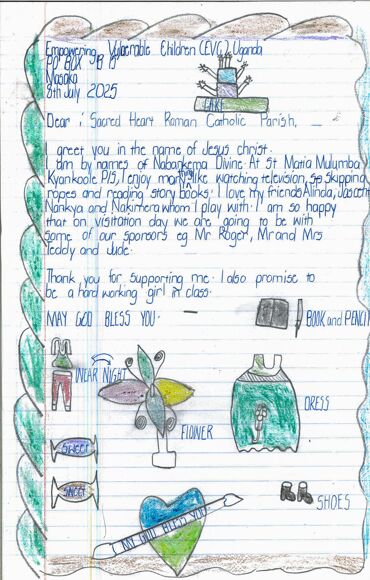 Empowering Vulnerable Children (EVC) Uganda
PO BOX
Masaka
8th July 2025
CAKE
Dear : Sacred Heart Roman Catholic Parish,
I greet you in the name of Jesus christ.
I am by names of Nabankema Divine. At St Matia Mulumba
Kyankoole P/S, I enjoy many things like watching television, skipping
ropes and reading story books. I love my friends Alinda,
Nankya and Nakimera whom I play with. I am so happy
that on visitation day we are going to be with
some of our sponsors eg Mr Roger, Mr and Mrs
Teddy and Jude.
Thank you for supporting me. I also promise to
be a hard working girl in class.
MAY GOD BLESS YOU.
BOOK and PENCIL
WEAR NIGHT
FLOWER
DRESS
SWEET
SWEET
SHOES
MAY GOD BLESS YOU